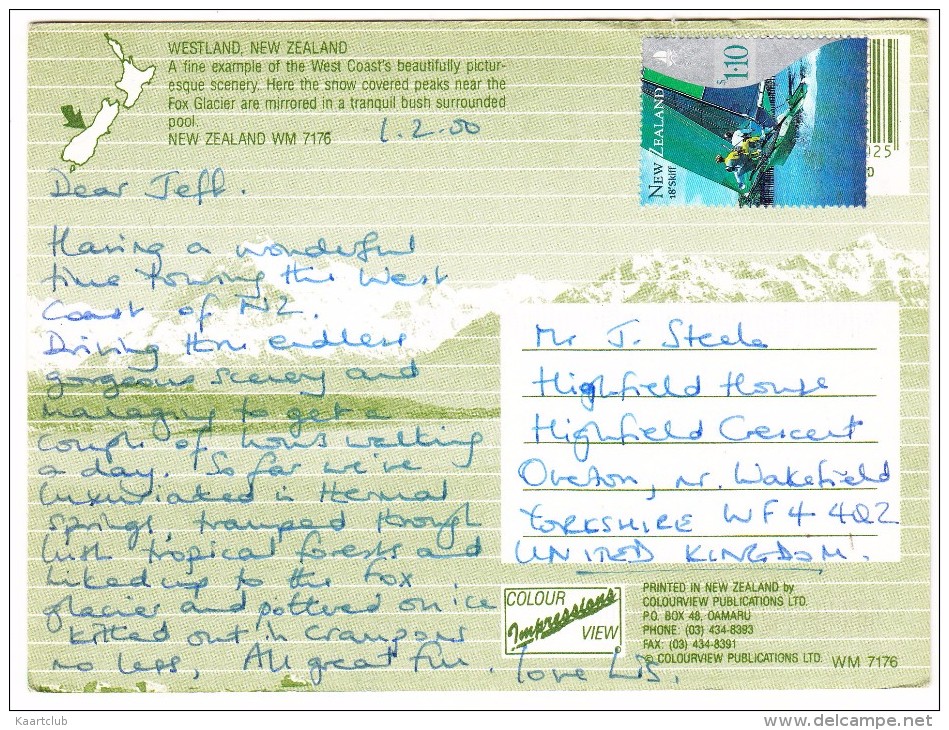 WESTLAND, NEW ZEALAND
A fine example of the West Coast's beautifully pictur-
esque scenery. Here the snow covered peaks near the
Fox Glacier are mirrored in a tranquil bush surrounded
pool.
NEW ZEALAND WM 7176
1.2.00
$1.10
NEW ZEALAND
18'Skiff
025
0
Dear Jeff.
Having a wonderful
time touring the West
Coast of NZ.
Driving thro endless
gorgeous scenery and
managing to get a
couple of hours walking
a day. So far we've
luxuriated in thermal
springs, tramped through
lush tropical forests and
hiked up to the Fox
glacier and pottered on ice
kitted out in crampons
no less, All great fun.
Love Lis.
Mr J. Steele
Highfield House
Highfield Crescent
Overton, nr. Wakefield
YORKSHIRE WF4 4QZ
UNITED KINGDOM.
COLOUR
Impressions
VIEW
PRINTED IN NEW ZEALAND by
COLOURVIEW PUBLICATIONS LTD.
P.O. BOX 48, OAMARU
PHONE: (03) 434-8393
FAX: (03) 434-8391
© COLOURVIEW PUBLICATIONS LTD. WM 7176
Kaartclub
www.delcampe.net